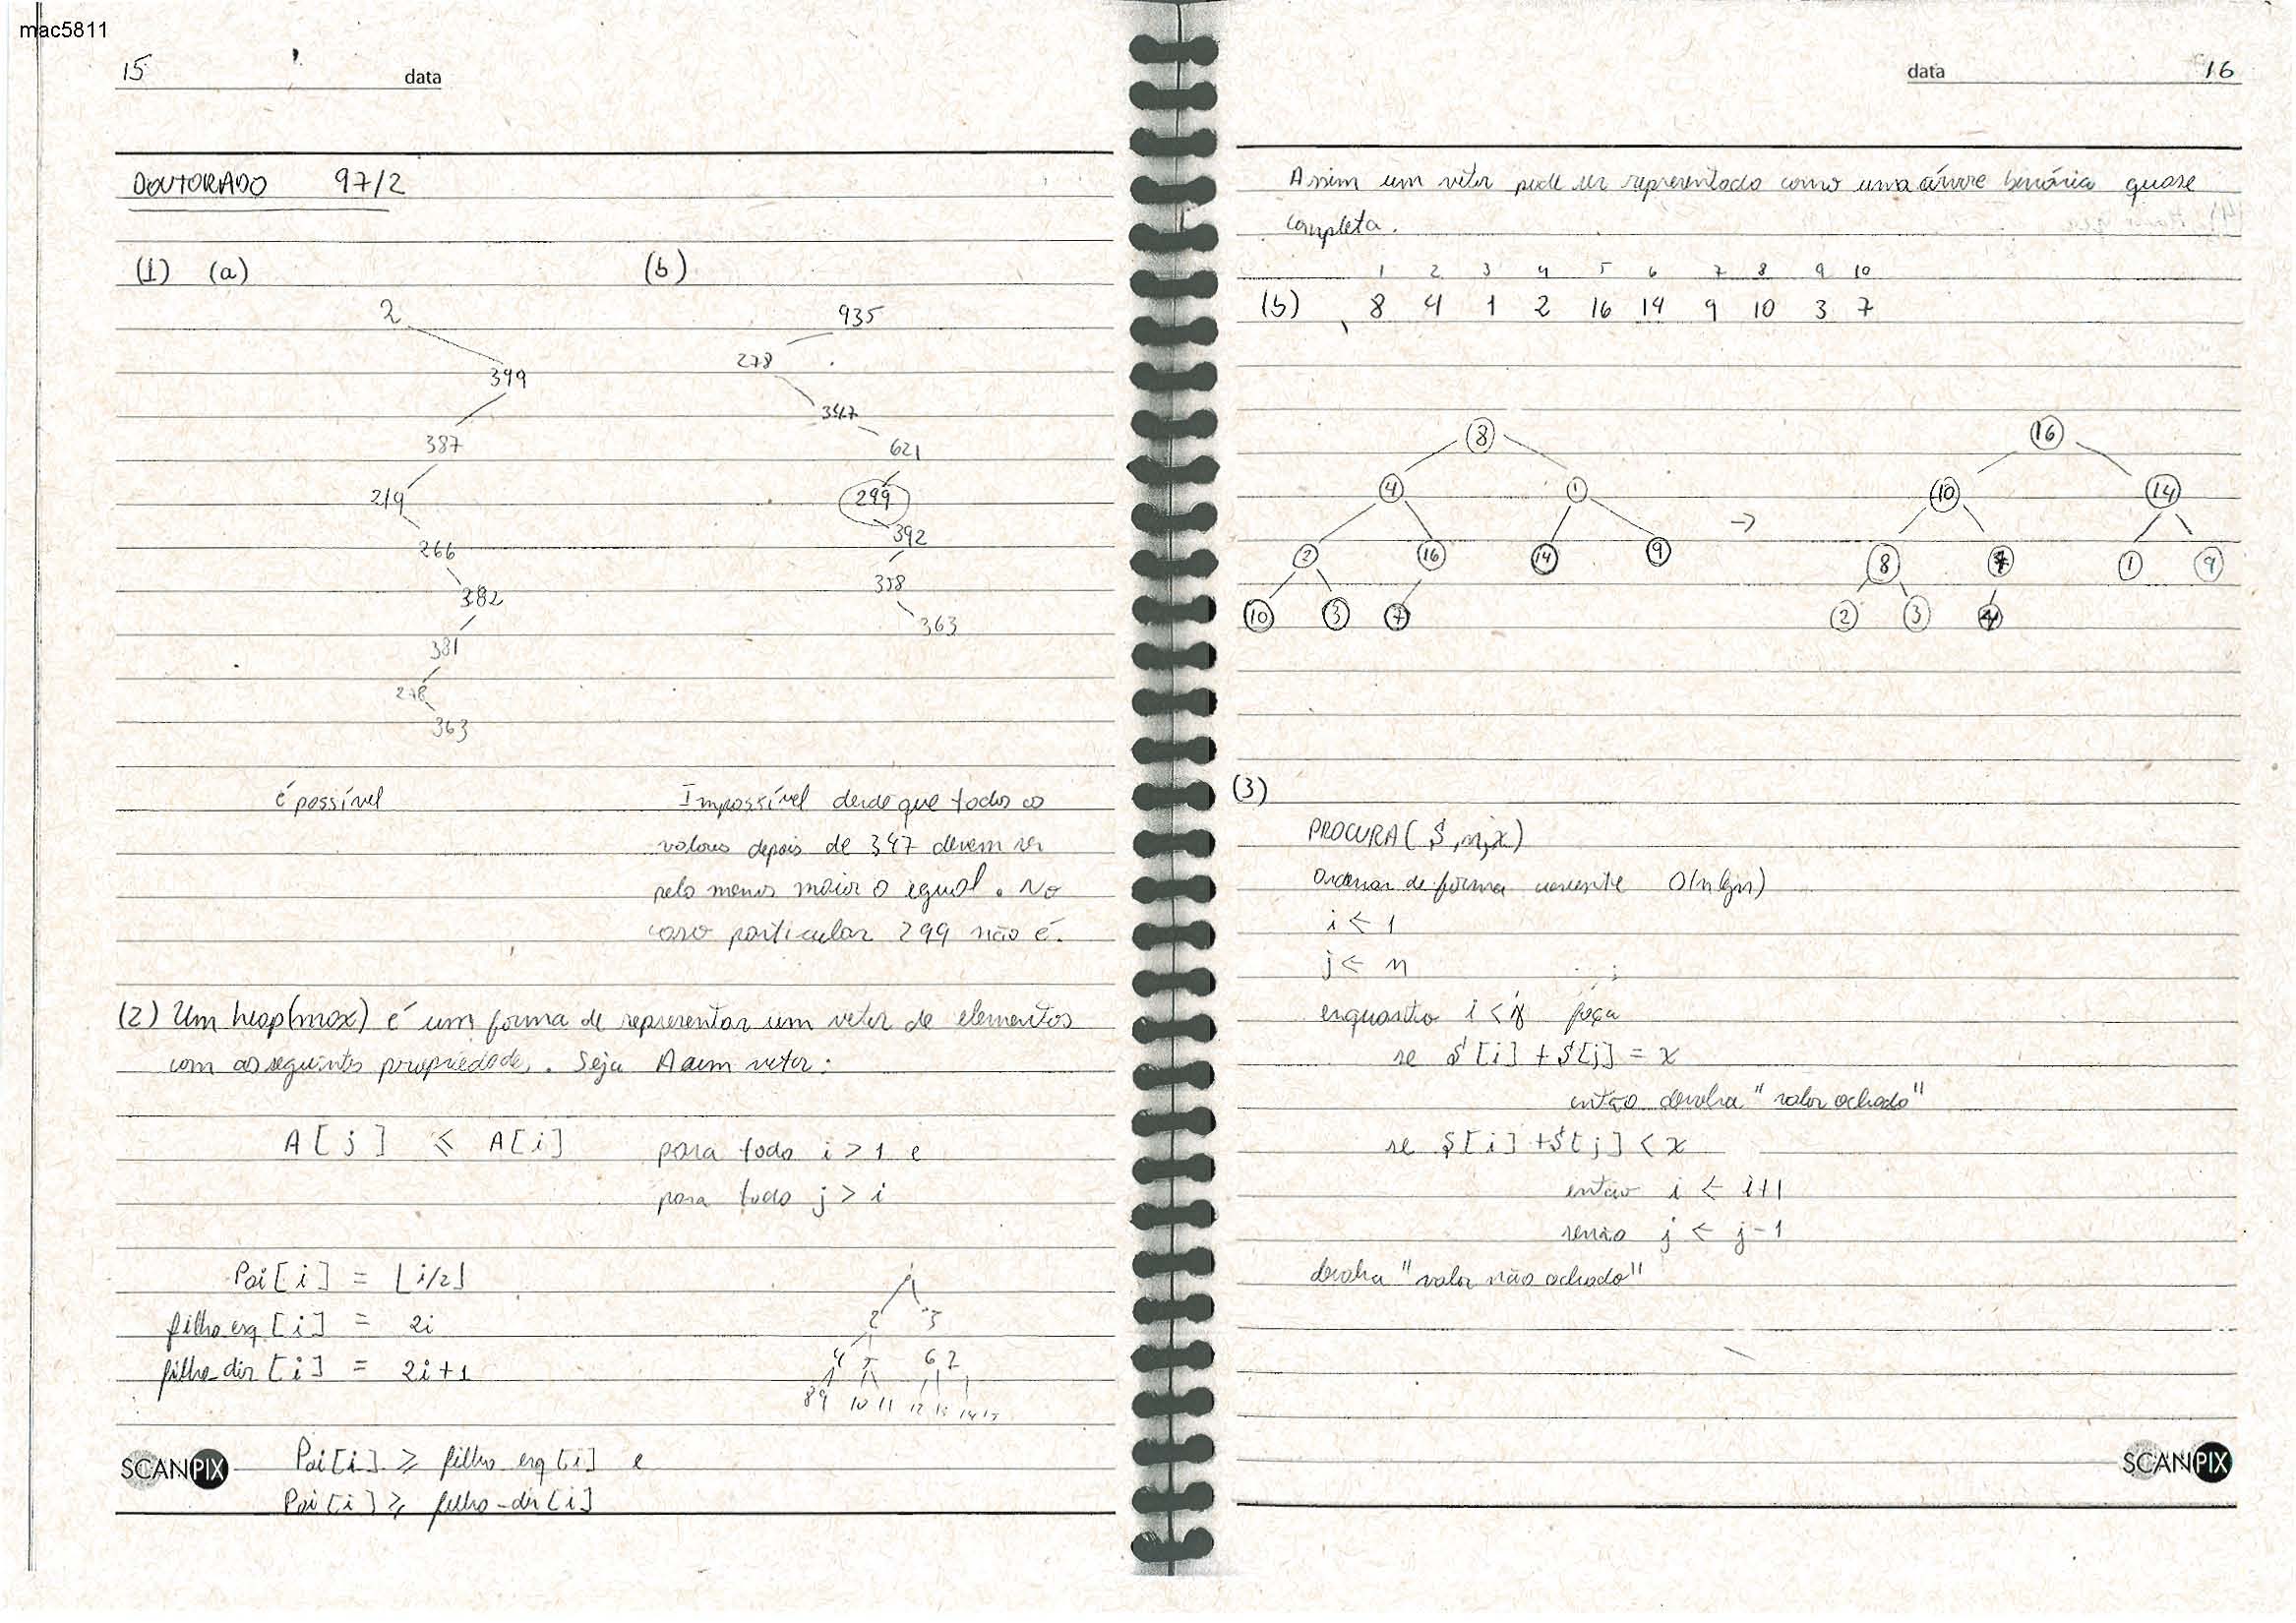 mac5811
15
data
DOUTORADO 97/2
(1) (a)
2
399
387
219
266
382
381
278
363
é possível
(b)
935
278
347
621
299
392
358
363
Impossível desde que todos os
valores depois de 347 devem ser
pelo menos maior o igual. No
caso particular 299 não é.
(2) Um heap(max) é um forma de representar um vetor de elementos
com as seguintes propriedade. Seja A um vetor:
A[j] ≤ A[i] para todo i > 1 e
para todo j > i
Pai[i] = ⌊i/2⌋
filho esq [i] = 2i
filho_dir [i] = 2i+1
1
2 3
4 5 6 7
8 9 10 11 12 13 14 15
Pai[i] ≥ filho esq[i] e
Pai[i] ≥ filho-dir[i]
SCANPIX
data
16
Assim um vetor pode ser representado como uma árvore binária quase
completa.
1 2 3 4 5 6 7 8 9 10
(b) 8 4 1 2 16 14 9 10 3 7
8
4 1
2 16 14 9
10 3 7
→
16
10 14
8 7 1 9
2 3 4
(3)
PROCURA(S,n,x)
Ordenar de forma crescente O(n lg n)
i ← 1
j ← n
enquanto i < j faça
se S[i] + S[j] = x
então devolva "valor achado"
se S[i] + S[j] < x
então i ← i+1
senão j ← j-1
devolva "valor não achado"
SCANPIX